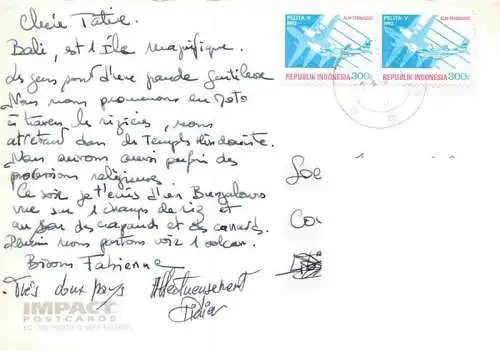 Chère Tatie.
Bali, est l'Île magnifique.
les gens sont d'une grande Gentillesse
Nous nous promenons en Moto
à travers les rizières, nous
arrêtant dans des Temples Hindouiste.
Nous suivons aussi parfois des
processions religieuses
Ce soir je t'écris d'un Bungalows
vue sur 1 champs de riz et
au son des crapauds et des canards.
Demain nous partons voir 1 volcan.
Bisous Fabienne
Très doux pays Affectueusement
Didier
IMPACT
POSTCARDS
PELITA-V
1992
ALIH TEKNOLOGI
REPUBLIK INDONESIA 300r
PELITA-V
1992
ALIH TEKNOLOGI
REPUBLIK INDONESIA 300r